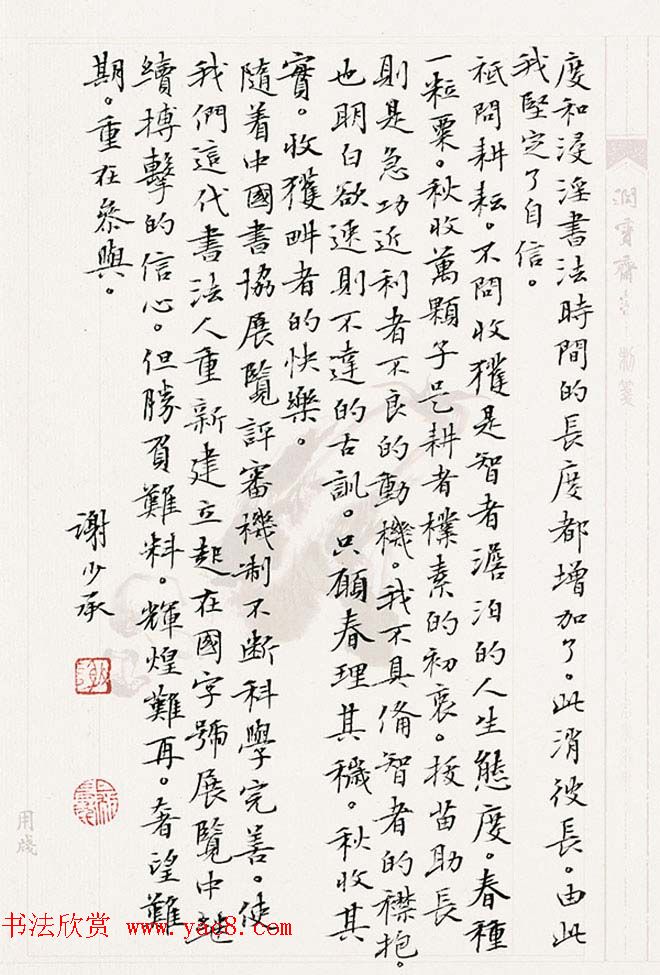 度和浸淫書法時間的長度都增加了。此消彼長。由此
我堅定了自信。
祇問耕耘。不問收獲是智者澹泊的人生態度。春種
一粒粟。秋收萬顆子是耕者樸素的初衷。拔苗助長
則是急功近利者不良的動機。我不具備智者的襟抱。
也明白欲速則不達的古訓。只願春理其穢。秋收其
實。收獲畊者的快樂。
隨着中國書協展覽評審機制不斷科學完善。使
我們這代書法人重新建立起在國字號展覽中繼
續搏擊的信心。但勝負難料。輝煌難再。奢望難
期。重在參與。
謝少承
用牋
书法欣赏 www.yac8.com